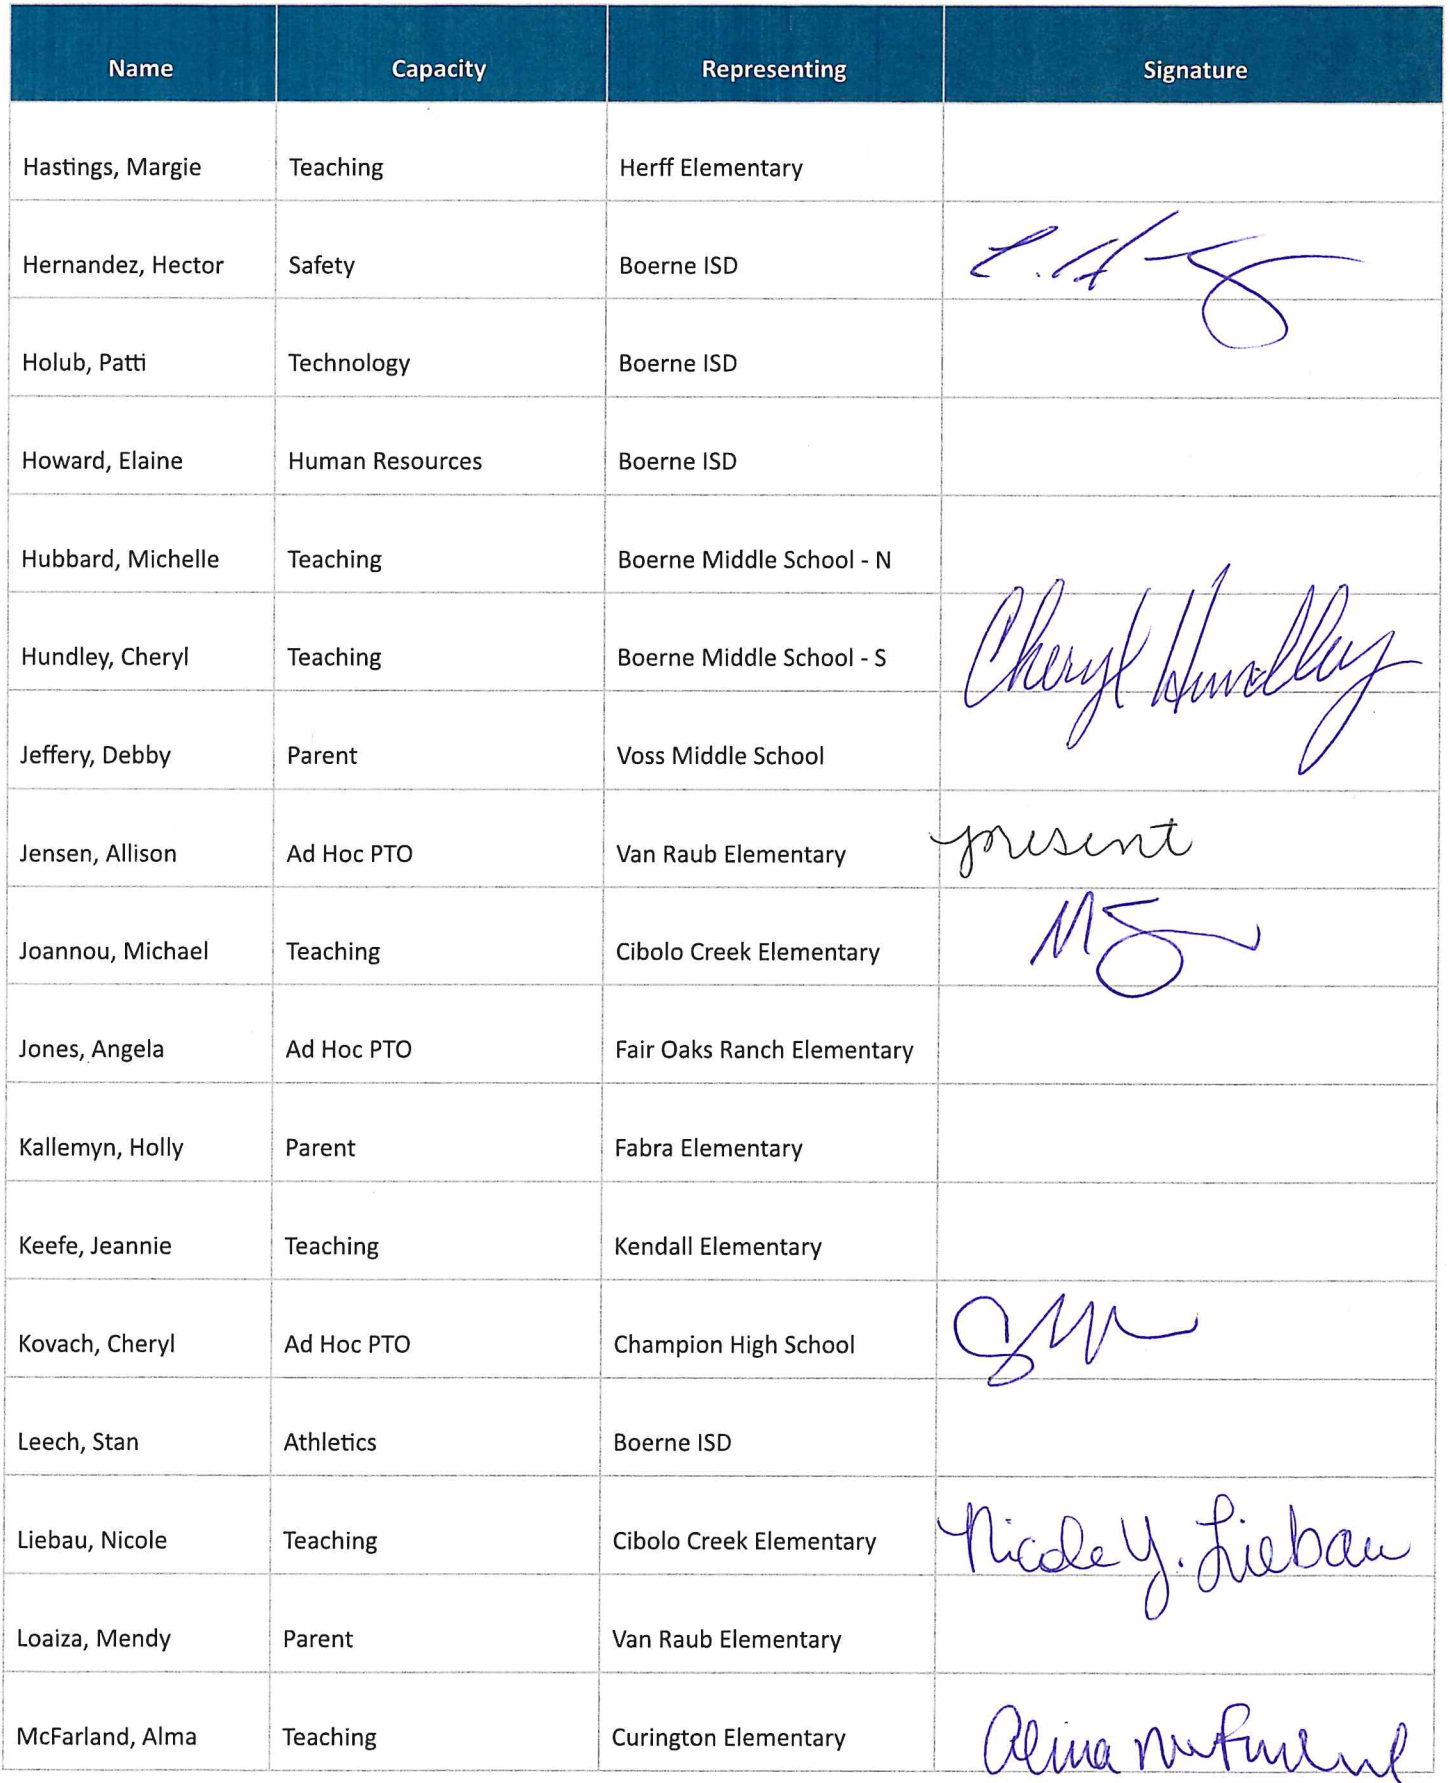 Name Capacity Representing Signature
Hastings, Margie Teaching Herff Elementary
Hernandez, Hector Safety Boerne ISD
Holub, Patti Technology Boerne ISD
Howard, Elaine Human Resources Boerne ISD
Hubbard, Michelle Teaching Boerne Middle School - N
Hundley, Cheryl Teaching Boerne Middle School - S Cheryl Hundley
Jeffery, Debby Parent Voss Middle School
Jensen, Allison Ad Hoc PTO Van Raub Elementary present
Joannou, Michael Teaching Cibolo Creek Elementary
Jones, Angela Ad Hoc PTO Fair Oaks Ranch Elementary
Kallemyn, Holly Parent Fabra Elementary
Keefe, Jeannie Teaching Kendall Elementary
Kovach, Cheryl Ad Hoc PTO Champion High School
Leech, Stan Athletics Boerne ISD
Liebau, Nicole Teaching Cibolo Creek Elementary Nicole Y. Liebau
Loaiza, Mendy Parent Van Raub Elementary
McFarland, Alma Teaching Curington Elementary Alma